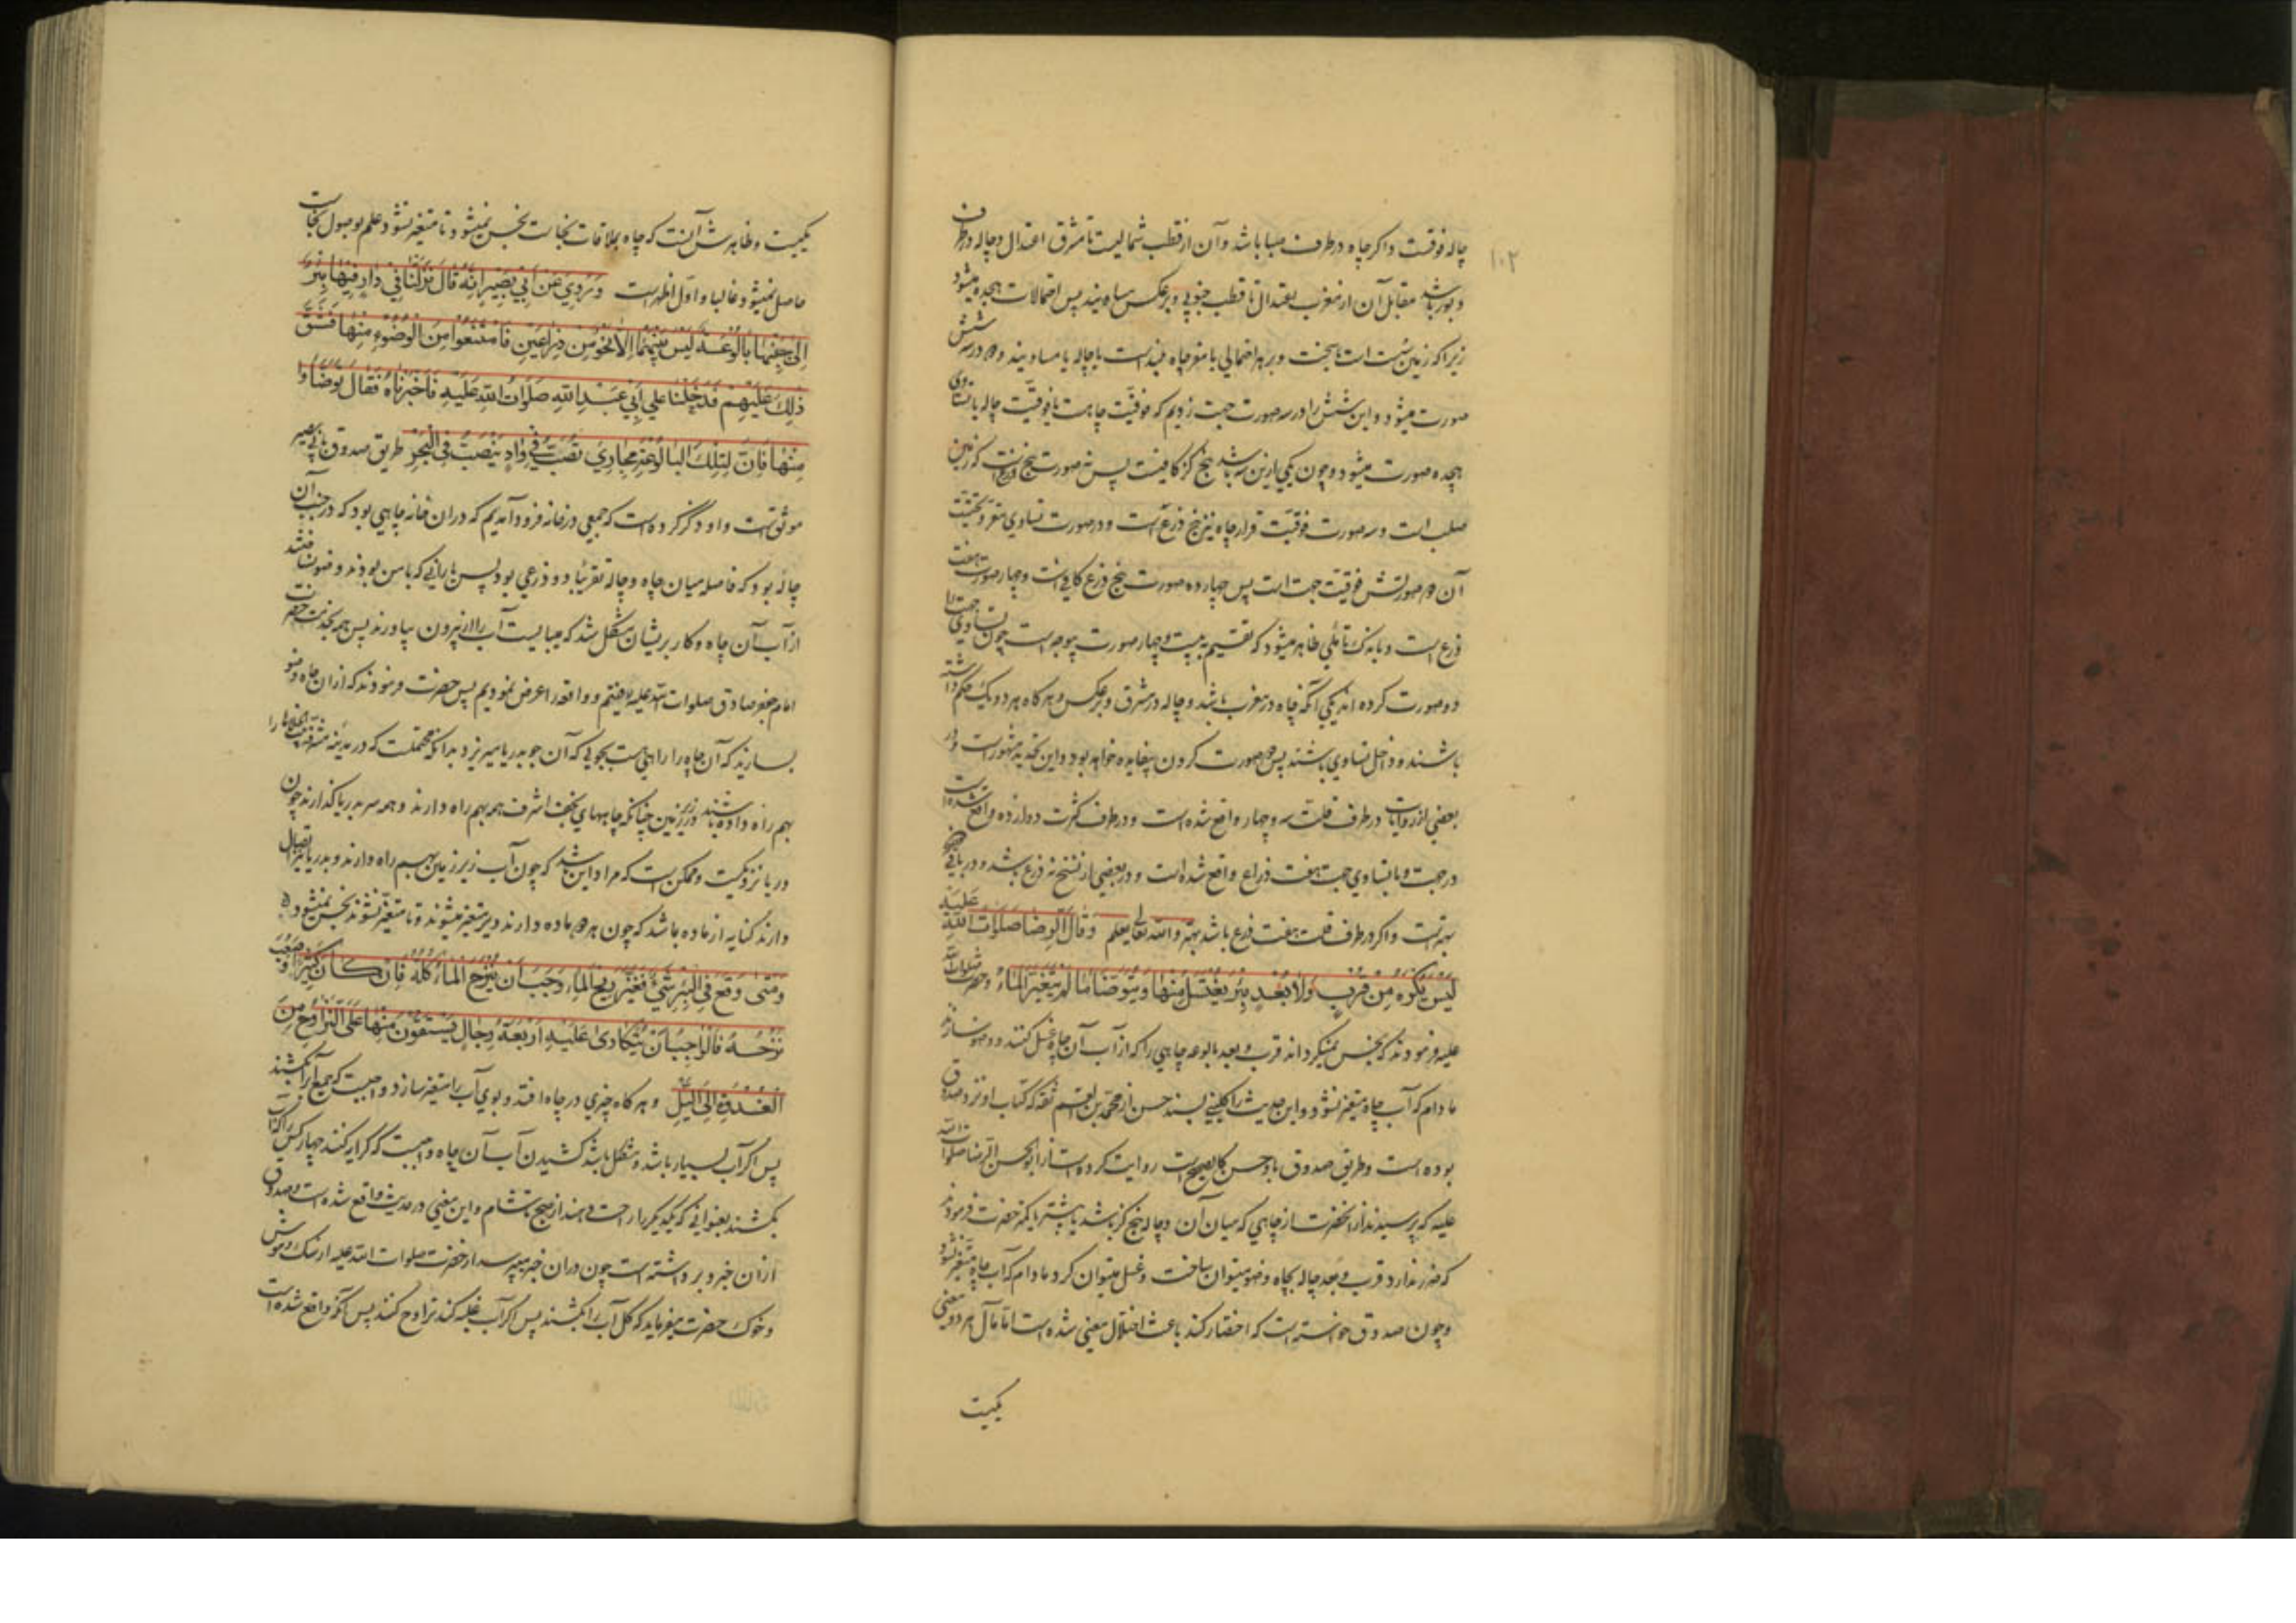 ۱۰۲
چاله فوقست و اکر چاه در طرف صبا باشد و آن از قطب شمالیست تا مشرق اعتدال و چاله در طرف
دبور باشد مقابل آن از مغرب بعتدال تا قطب جنوبی و برعکس پس احتمالات هجده میشود
زیرا که زمین سست است یا سخت و بر هر احتمالی یا مقر چاه بلند است یا چاله یا مساویند و در هر شش
صورت میشود و این شش را در سه صورت جهت زدیم که فوقیّت چاهست یا فوقیّت چاله یا تساوی
هجده صورت میشود و چون یکی ازین سه باشد پنج کز کافیست پس نه صورت پنج ذرعست که زمین
صلب است و سه صورت فوقیّت قرار چاه نیز پنج ذرع است و در صورت تساوی مقر و تحتیّت
آن دو صورتش فوقیّت جهت است پس چهارده صورت پنج ذرع کافی است و چهار صورت هفت
ذرع است و باندک تأملی ظاهر میشود که تقسیم به بیست و چهار صورت بیوجه است چون تساوی جهت را
دو صورت کرده اند یکی آنکه چاه در مغرب باشد و چاله در مشرق و برعکس و هر کاه هر دو یک حکم داشته
باشند و داخل تساوی باشند پس دو صورت کردن بیفایده خواهد بود و این تحدید مشهور است و در
بعضی از روایات در طرف قلت سه و چهار واقع شده است و در طرف کثرت دوازده واقع شده است
در جهت و با تساوی جهت هفت ذراع واقع شده است و در بعضی از نسخ نه ذرع باشد و در باقی پنج
بهتر است و اکر در طرف قلت هفت ذرع باشد بهتر والله تعالی یعلم وَقَالَ الرِّضَا صَلَوَاتُ اللهِ عَلَیْهِ
لَیْسَ یُکْرَهُ مِنْ قُرْبٍ وَلَا بُعْدٍ بِئْرٌ یُغْتَسَلُ مِنْهَا وَیُتَوَضَّأُ مَا لَمْ یَتَغَیَّرِ الْمَاءُ و حضرت صلوات الله
علیه فرمودند که نجس نمیکرداند قرب و بعد بالوعه چاهی را که از آب آن چاه غسل کنند و وضو سازند
ما دام که آب چاه متغیر نشود و این حدیث را کلینی بسند حسن از محمد بن القسم ثقه که کتاب او نزد صدوق
بوده است و طریق صدوق باو حسن کالصحیح است روایت کرده است از ابو الحسن الرضا صلوات الله
علیه که پرسیدند از انحضرت از چاهی که میان آن و چاله پنج کز باشد یا بیشتر یا کمتر حضرت فرمودند
که ضرر ندارد قرب و بعد چاله بچاه وضو میتوان ساخت و غسل میتوان کرد ما دام که آب چاه متغیر نشود
و چون صدوق خواسته است که اختصار کند باعث اختلال معنی شده است اما مآل هر دو بیک معنی
یکیست
یکیست و ظاهرش آنست که چاه بملاقات نجاست نجس نمیشود تا متغیر نشود و علم بوصول نجاست
حاصل نمیشود غالبا و اول اظهر است وَ رُوِیَ عَنْ اَبِی بَصِیرٍ اَنَّهُ قَالَ نَزَلْنَا فِی دَارٍ فِیهَا بِئْرٌ
اِلٰی جَنْبِهَا بَالُوعَةٌ لَیْسَ بَیْنَهُمَا اِلَّا نَحْوٌ مِنْ ذِرَاعَیْنِ فَامْتَنَعُوا مِنَ الْوُضُوءِ مِنْهَا فَشَقَّ
ذٰلِکَ عَلَیْهِمْ فَدَخَلْنَا عَلٰی اَبِی عَبْدِ اللهِ صَلَوَاتُ اللهِ عَلَیْهِ فَاَخْبَرْنَاهُ فَقَالَ تَوَضَّأُوا
مِنْهَا فَاِنَّ لِتِلْکَ الْبَالُوعَةِ مَجَارِیَ تَصُبُّ فِی وَادٍ یَنْصَبُّ فِی الْبَحْرِ طریق صدوق بابی بصیر
موثق است و او ذکر کرده است که جمعی در خانه فرود آمدیم که دران خانه چاهی بود که در جنب آن
چاله بود که فاصله میان چاه و چاله تقریبًا دو ذرعی بود پس یارانی که با من بودند وضو نساختند
از آب آن چاه و کار بریشان مشکل شد که میبایست آب را از بیرون بیاورند پس همه بخدمت حضرت
امام جعفر صادق صلوات الله علیه رفتیم و واقعه را عرض نمودیم پس حضرت فرمودند که ازان چاه وضو
بسازید که آن چاه را راهی هست بجویی که آن جو بدریا میریزد بدانکه محتملست که در مدینه مشرفه بیت الخلاها را
بهم راه داده باشند در زیر زمین چنانکه چاههای نجف اشرف همه بهم راه دارند و همه سر بدریا کذارند چون
دریا نزدیکست و ممکن است که مراد این باشد که چون آب زیر زمین بهم راه دارند و بدریا نیز اتصال
دارند کنایه از ماده باشد که چون هر دو ماده دارند دیر متغیر میشوند و تا متغیر نشوند نجس نمیشود
وَمَتٰی وَقَعَ فِی الْبِئْرِ شَیْءٌ فَغَیَّرَ رِیحَ الْمَاءِ وَجَبَ اَنْ یُنْزَحَ الْمَاءُ کُلُّهُ فَاِنْ کَانَ کَثِیرًا وَ صَعُبَ
نَزْحُهُ فَالْوَاجِبُ اَنْ یُتَکَارٰی عَلَیْهِ اَرْبَعَةُ رِجَالٍ یَسْتَقُونَ مِنْهَا عَلَی التَّرَاوُحِ مِنَ
الْغُدْوَةِ اِلَی اللَّیْلِ و هر کاه چیزی در چاه افتد و بوی آب را متغیر سازد واجبست که جمیع آب را بکشند
پس اکر آب بسیار باشد و مشکل باشد کشیدن آب آن چاه واجبست که کرایه کنند چهار کس را که آب
بکشند بعنوانی که یکدیکر را راحت دهند از صبح تا شام و این معنی در حدیث واقع شده است و صدوق
ازان خبر و بر داشته است چون دران خبر میپرسد از حضرت صلوات الله علیه از سک و موش
و خوک حضرت میفرماید که کل آب را بکشند پس اکر آب غلبه کند تراوح کنند پس آنچه واقع شده است